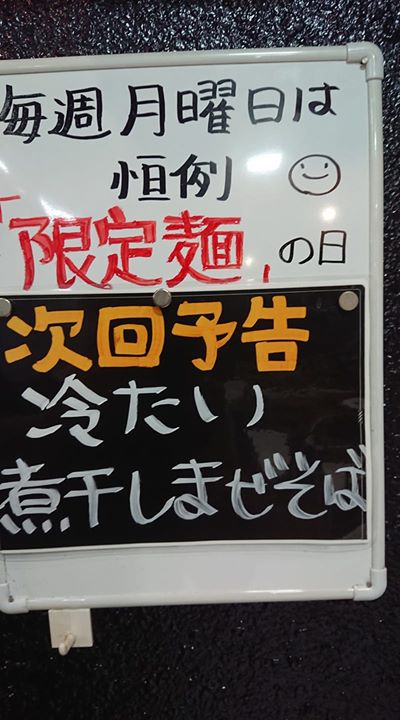 毎週月曜日は
恒例
「限定麺」の日
次回予告
冷たい
煮干しまぜそば